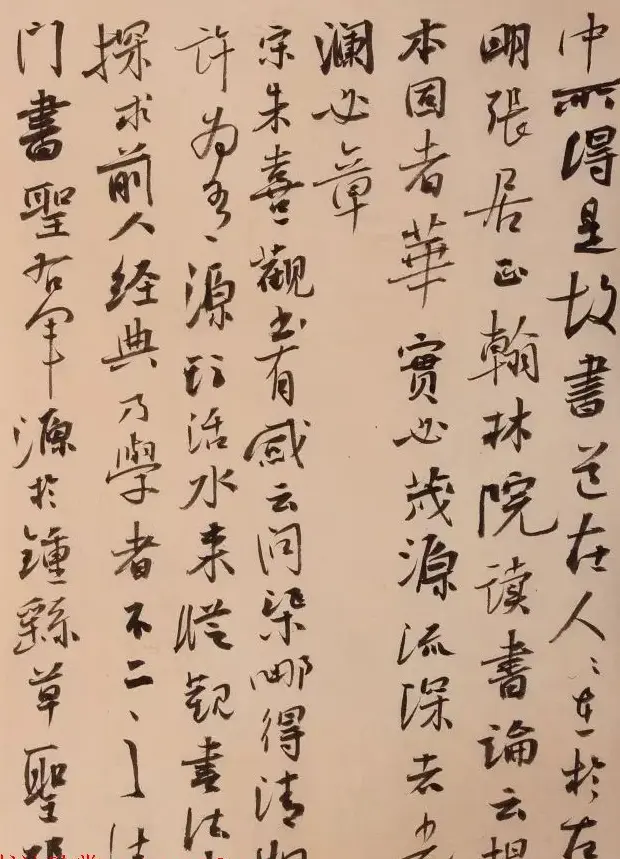 中所得是故書道在人人在於古
明張居正翰林院读書論云根
本固者華實必茂源流深者光
瀾必章
宋朱熹觀書有感云问渠哪得清如
許为有源頭活水来從观書法
探求前人经典乃學者不二之法
门書聖右军源於鍾繇草聖